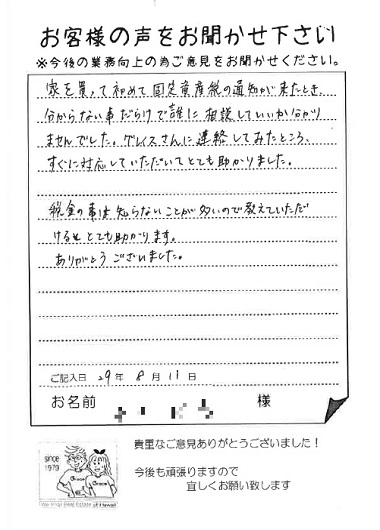 お客様の声をお聞かせ下さい
※今後の業務向上の為ご意見をお聞かせください。
家を買って初めて固定資産税の通知が来たとき、
分からない事だらけで誰に相談していいか分かり
ませんでした。グレイスさんに連絡してみたところ、
すぐに対応していただいてとても助かりました。
税金の事は知らないことが多いので教えていただ
けるととても助かります。
ありがとうございました。
ご記入日 29年 8月 11日
お名前 様
貴重なご意見ありがとうございました！
今後も頑張りますので
宜しくお願い致します
since
1979
Grace
Grace